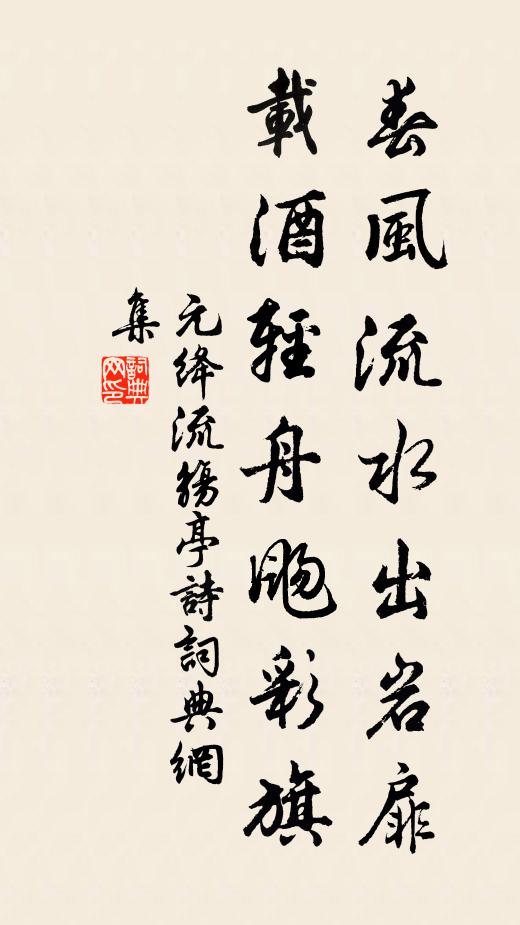 春風流水出岩扉
載酒輕舟颺彩旗
元绛流觴亭詩詞典網
集
詞典网印